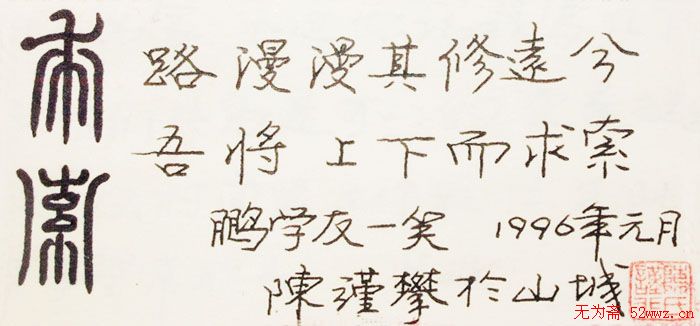 求索
路漫漫其修遠兮
吾将上下而求索
鹏学友一笑 1996年元月
陳 攀於山城
无为斋 52wwz.cn